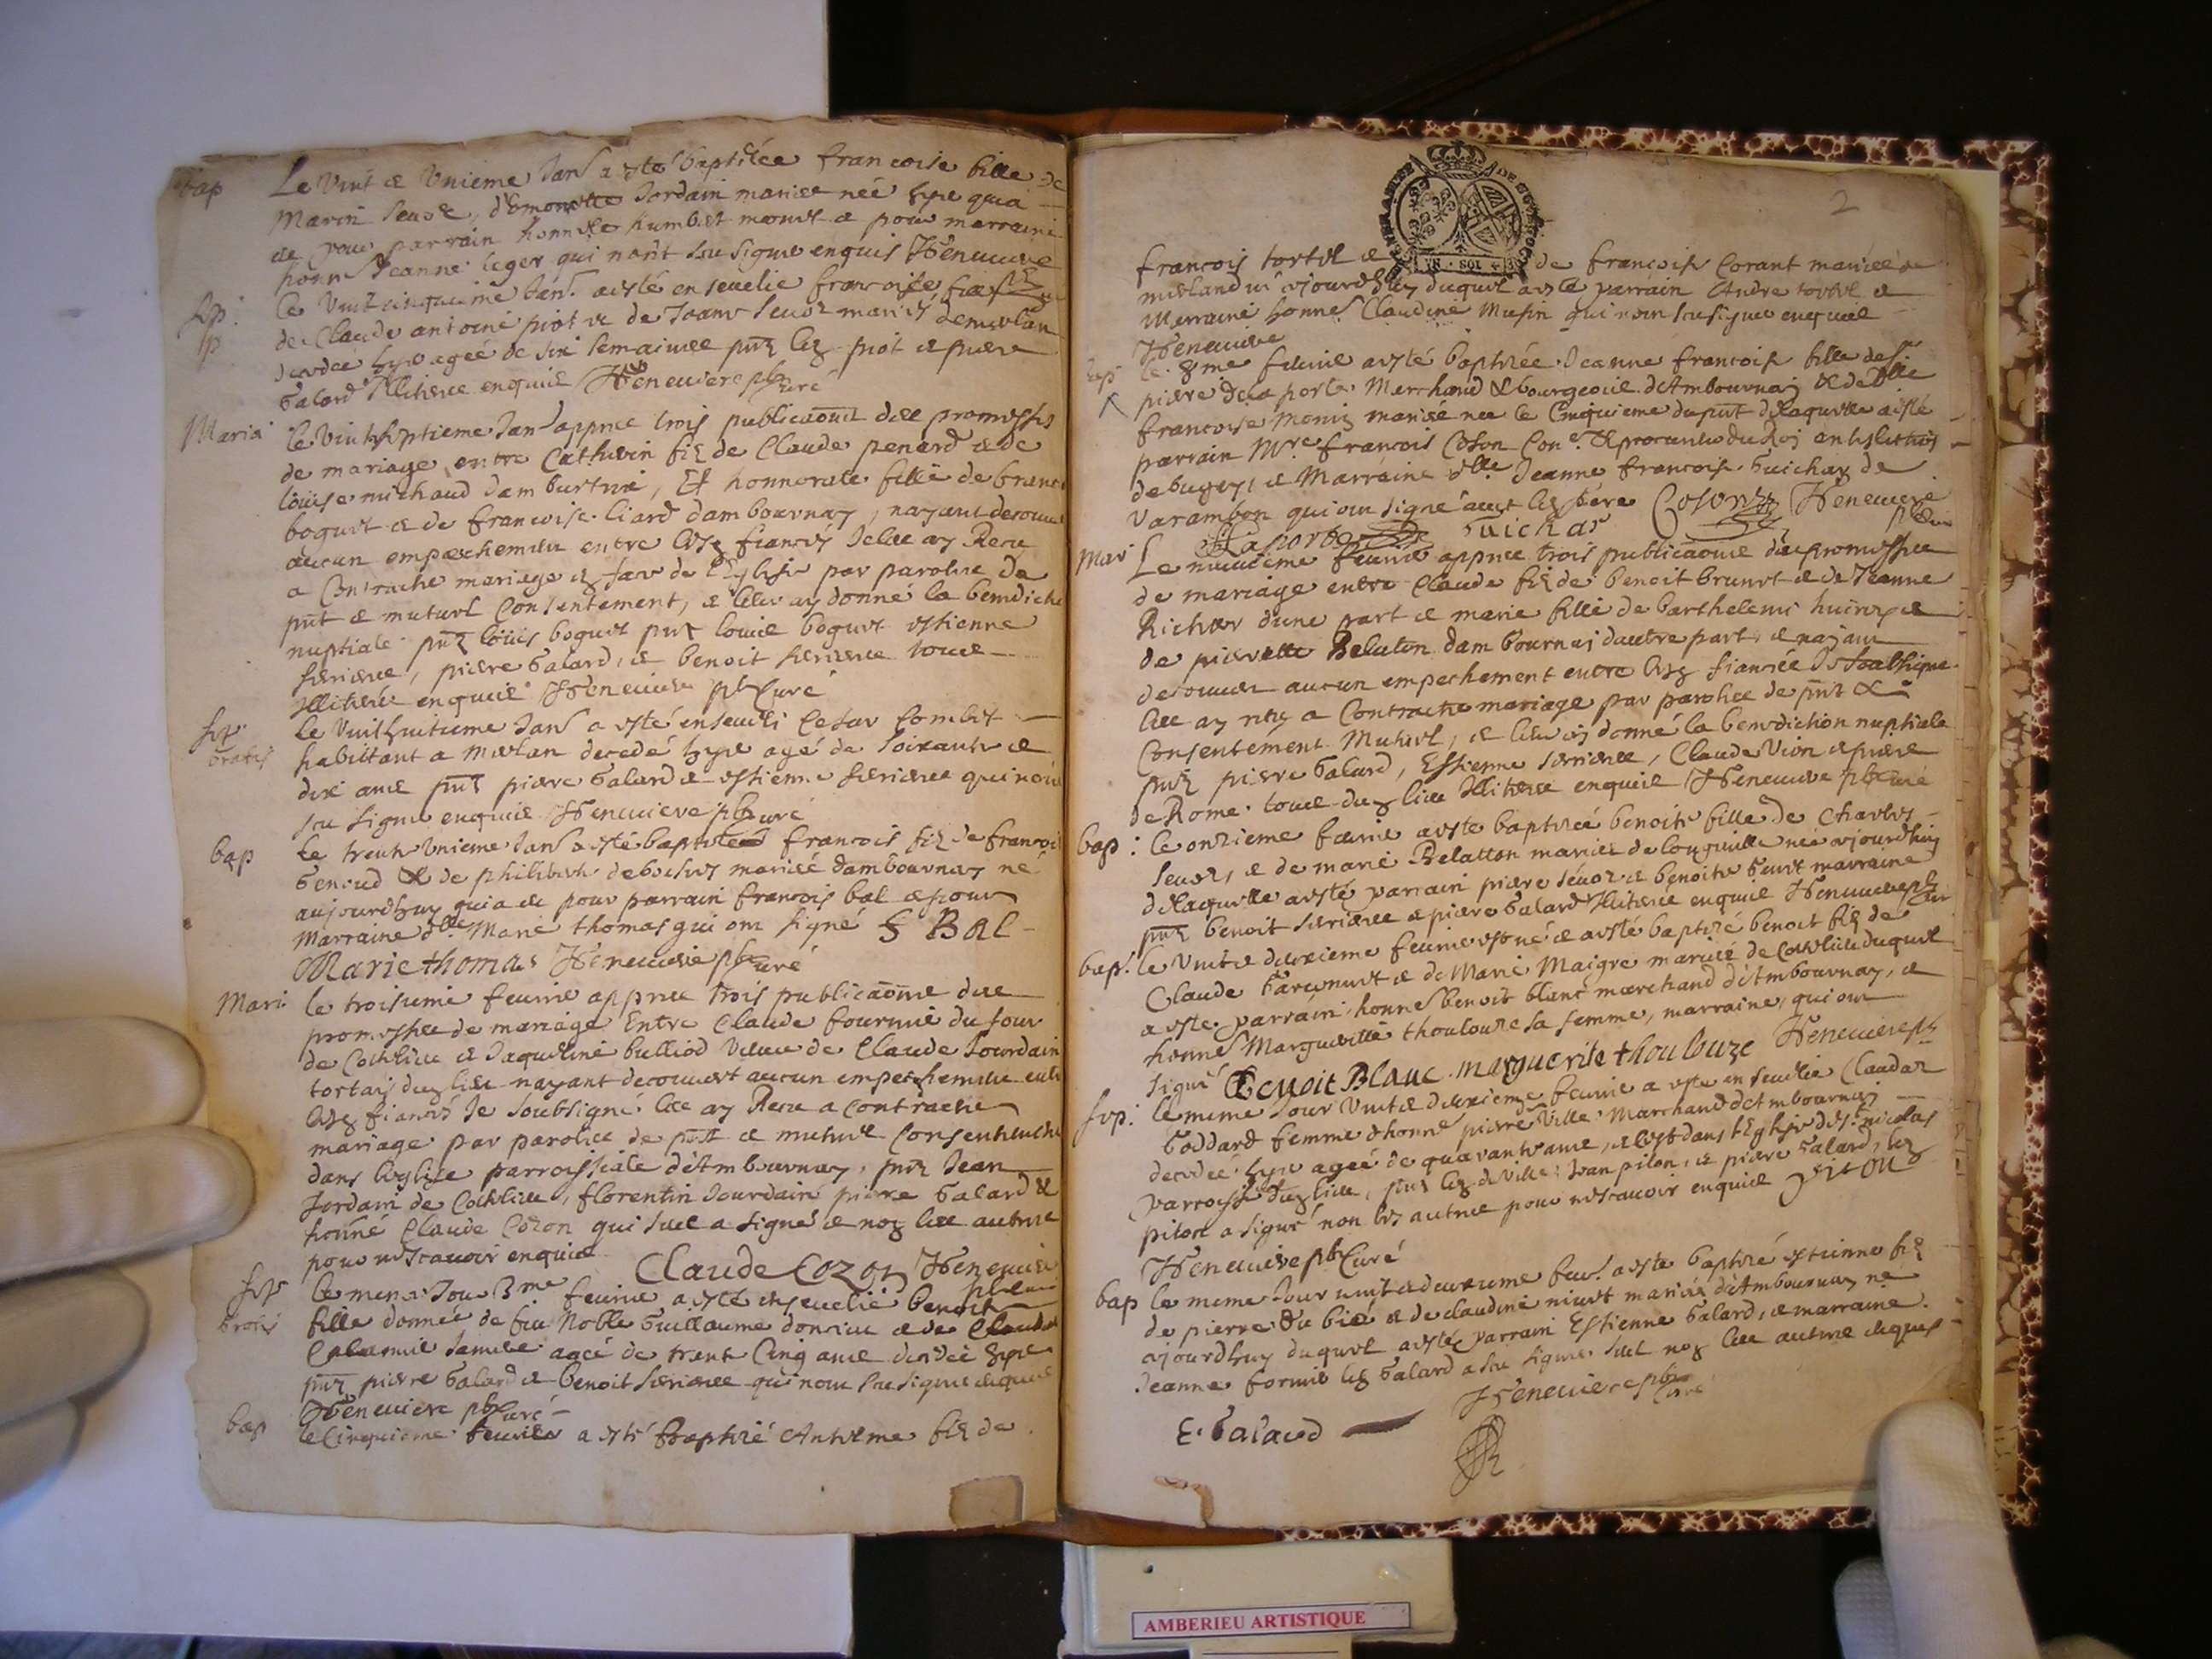 bap
Le Vint & Unieme Janr a esté baptisée francoise fille de
Marin seuoz, d'Emonette Jordain mariee née hyer qui a
eu pour parrain honneste humbert & pour marraine
honne Jeanne leger qui n'ont sceu signer enquis Heneuiere
sep.
le Vint cinquieme Janr. a esté enseuelie francoise fille
de Claude antoine piot & de Jeanne seuoz mariés de merlan
decedée hyer ageé de six semaines pnts led piot & pierre
Galard Illiteres enquis Heneuiere pbre Curé
Maria
le Vint septieme Janr appres trois publicaons des promesses
de mariage entre Cathelin fils de Claude penard & de
louise michaud dam butrix, Et honnorate fille de franc
boguet & de francoise liard dambournay, nayant decouue
aucun empeschement entre lesd fiancés Je les ay Receu
a Contracter mariage en face de l'Eglise par parolles de
pnt & mutuel Consentement, & leur ay donne la benedicti
nuptiale pnts loüis boguet pnt louis boguet estienne
ferieres, pierre Galard, & benoit ferieres tous
Illiteres enquis Heneuiere pbre Curé
sep
Gratis
le Vint huitieme Janr a esté enseueli Cesar Combet
habittant a merlan decedé hyer agé de soixante &
dix ans pnts pierre Galard & estienne ferieres qui n'on
sceu signer enquis Heneuiere pbre Curé
bap
Le trente Unieme Janr a esté baptisé francois fils de francoi
Genoud & de philiberte debeshes mariés dambournay né
aujourdhuy qui a eu pour parrain francois bal & pour
marraine dlle Marie thomas qui ont signé F BAL
Marie thomas Heneuiere pbre Curé
Mari
le troisieme feurier appres trois publicaons des
promesses de mariage Entre Claude fournier du four
de Coutelieu & Jaqueline bulliod Veuue de Claude Jourdain
tortay dud lieu nayant decouuert aucun empeschement entre
lesd fiancés Je soubsigné les ay Receu a Contracter
mariage par parolles de pnt & mutuel Consentement
dans leglise parroissiale d'Ambournay, pnts Jean
Jordain de Coutelieu, florentin Jourdain pierre Galard &
honné Claude Cozon qui seul a signé & nog les autres
pour ne scauoir enquis
Claude Cozon Heneuiere
pbre Curé
sep
Gratis
le mesme Jour 3me feurier a esté enseuelie benoite
fille donnée de feu Noble Guillaume doncieu & de Claude
agée de trente Cinq ans decedée hyer
pnts pierre Galard & benoit ferieres qui n'ont sceu signer enquis
Heneuiere pbre Curé
bap
le Cinquieme feurier a esté Baptisé Anthelme fils de
2
GENERALITE DE BOURGOGNE
UN. SOL
francois tortel & de francoise Corant mariés de
merlandin ajourdhuy duquel a esté parrain Andre tortel &
Marraine honne Claudine Musin qui n'ont sceu signer enquis
Heneuiere
bap
le 8me feurier a esté baptisée Jeanne francoise fille de sr.
pierre de la porte Marchand & bourgeois d'Ambournay & de dlle
francoise Monin mariés neé le Cinquieme du pnt de laquelle a esté
parrain Mre. francois Coson Coner. & procureur du Roj en leslection
de bugey, & Marraine dlle Jeanne francoise Guichar de
Varambon qui ont signé auec led pere Coson Heneuiere
Laporte Guichar pbre Curé
Mar
Le neuuieme feurier appres trois publicaons des promesses
de mariage entre Claude fils de benoit brunet & de Jeanne
Richer d'une part & marie fille de barthelemi &
de pierrette Belatton dam bournaj d'autre part, & najant
decouuer aucun empechement entre lesd fiancés
les ay receu a Contracter mariage par parolles de pnt &
Consentement Mutuel, & leur aj donné la benediction nuptiale
pnts pierre Galard, Estienne ferieres, Claude Vion & pierre
de Rome tous dud lieu Illiteres enquis Heneuiere pbre Curé
bap :
le onzieme feurier a esté baptisée benoite fille de Charles
seuoz, & de marie Belatton mariés de longeuille née ajourdhuy
de laquelle a esté parrain pierre seuoz & benoite marraine
pnts benoit ferieres & pierre Galard Illiteres enquis Heneuiere pbre Cur
bap.
le Vint & deuxieme feurier est né & a esté baptisé benoit fils de
Claude & de Marie Maigre mariés de Coutelieu duquel
a esté parrain honne benoit blanc marchand d'Ambournay, &
honne Marguerite thoulouze sa femme, marraine, qui ont
signé Benoit Blanc. marguerite thoulouze Heneuiere pbre
sep :
le meme Jour Vint & deuxieme feurier a esté enseuelie Claudaz
Goddard femme d'honné pierre deVille Marchand d'Ambournaj
decedée hyer ageé de quarante ans, & lest dans l'Eglise de st. nicolas
parroisse dud lieu, pnts led deVille Jean piton, & pierre Galard, led
piton a signé non les autres pour ne scauoir enquis piton
Heneuiere pbre Curé
bap
le meme Jour vint & deuxieme feur. a esté baptisé estienne fils
de pierre du bié & de claudine niuet mariés d'Ambournay né
ajourdhuy duquel a esté parrain Estienne Galard, & marraine
Jeanne fornier led Galard a sceu signer seul nog les autres enquis
Heneuiere pbre Curé
E. Galard
AMBERIEU ARTISTIQUE